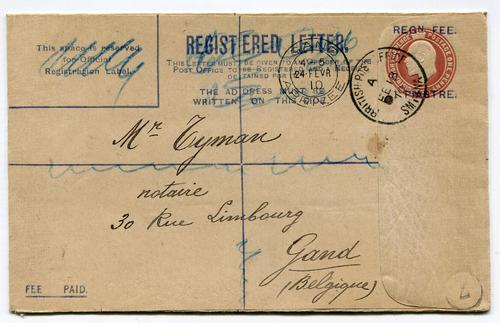 This space is reserved
for Official
Registration Label.
REGISTERED LETTER.
THIS LETTER MUST BE GIVEN TO AN OFFICER OF THE
POST OFFICE TO BE REGISTERED AND A RECEIPT
OBTAINED FOR IT.
THE ADDRESS MUST BE
WRITTEN ON THIS SIDE.
REGN. FEE.
1 PIASTRE.
BRITISH POST
SMYRNA
24 FEVR
10
Mr Tyman
notaire
30 Rue Limbourg
Gand
(Belgique)
FEE PAID.